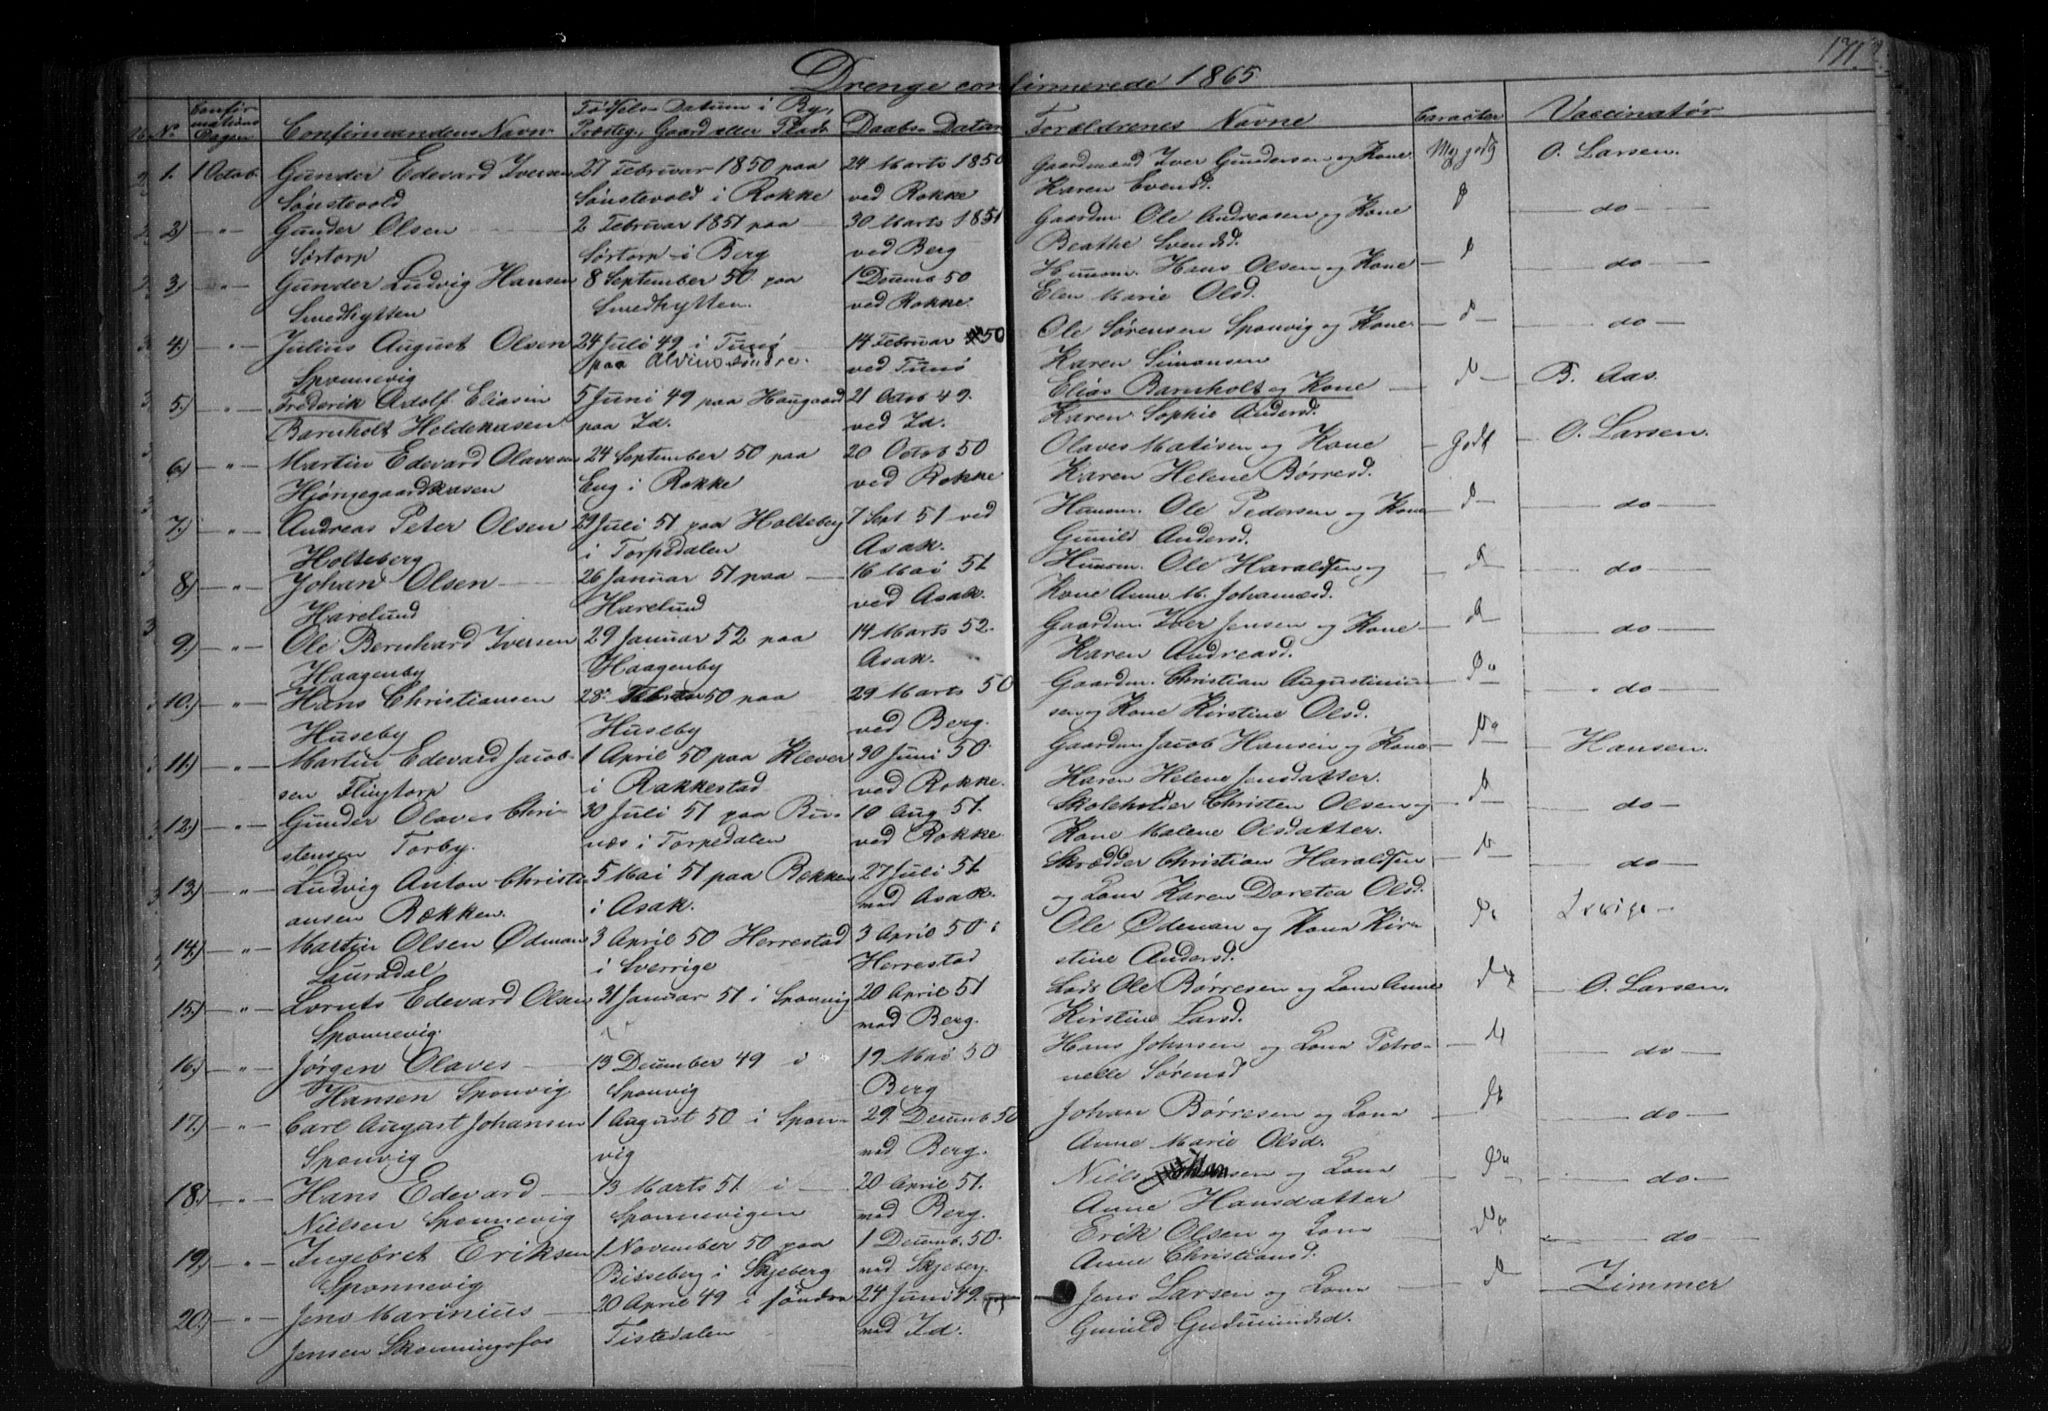 171
Drenge confirmerede 1865
No. Confirmations Dagen Confirmandens Navn Fødsels-Datum i By, Præsteg., Gaard eller Plads Daabs-Datum Forældrenes Navne Caracter Vaccinatør
1. 1 Octob. Gunder Edevard Iversen 27 Februar 1850 paa 24 Marts 1850 Gaardmand Iver Gundersen og Kone Meg godt O. Larsen.
Sønstevold Sønstevold i Rokke ved Rokke Karen Evensd.
2) " Gunder Olsen 2 Februar 1851 paa 30 Marts 1851 Gaardm. Ole Andreasen og Kone do
Sørtorp Sørtorp i Berg ved Berg Beathe Svendsd.
3) " Gunder Ludvig Hansen 8 September 50 paa 1 Decemb 50 Huusm. Hans Olsen og Kone do
Smedhytten Smedhytten. ved Rokke Elen Marie Olsd.
4.) " Julius August Olsen 24 Juli 49 i Tunø 14 Februar 50 Ole Sørensen Sponvig og Kone do
Sponnevig paa Alvim søndre. ved Tunø Karen Simonsen
5.) " Frederik Adolf Eliasen 5 Juni 49 paa Haugaard 21 Octob 49. Elias Barnholt og Kone B. Aas.
Barnholt Holdekasen paa Id. ved Id. Karen Sophie Andersd.
6) " Martin Edevard Olavesen 24 September 50 paa 20 Octob 50 Olaves Matisen og Kone Godt O. Larsen.
Hjørnegaardkasen Eng i Rokke ved Rokke Karen Helene Børresd.
7.) " Andreas Peter Olsen 29 Juli 51 paa Holteberg 7 Sept 51 ved Huusm. Ole Pedersen og Kone do
Holteberg i Torpedalen Asak. Gunild Andersd.
8) " Johan Olsen 26 Januar 51 paa 16 Mai 51 Huusm. Ole Haraldsen og do
Harelund Harelund ved Asak. Kone Anne M. Johannesd.
9.) " Ole Bernhard Iversen 29 Januar 52 paa 14 Marts 52. Gaardm. Iver Jensen og Kone do
Haagenby Haagenby Asak. Karen Andreasd.
10.) " Hans Christiansen 28. Februar 50 paa 29 Marts 50 Gaardm. Christian Augustinius- Do do
Huseby Huseby ved Berg. sen og Kone Kirstine Olsd.
11.) " Martin Edevard Jacob- 1 April 50 paa Klever 30 Juni 50. Gaardm Jacob Hansen og Kone Do Hansen.
sen Flingtorp i Rakkestad ved Rokke. Karen Helene Jensdatter.
12.) " Gunder Olaves Chri- 30 Juli 51 paa Bu- 10 Aug 51. Skoleholder Christen Olsen og do
stensen Torby. næs i Torpedalen ved Rokke Kone Malene Olsdatter.
13.) " Ludvig Anton Christi- 5 Mai 51 paa Rækken 27 Juli 51 Skrædder Christian Haraldsen do
ansen Rækken. i Asak. ved Asak. og Kone Karen Doretea Olsd.
14.) " Martin Olsen Ødman 3 April 50 Herrestad 3 April 50 i Ole Ødman og Kone Kir- Do
Lauradal i Sverrige Herrestad stine Andersd.
15.) " Lornts Edevard Olsen 31 Januar 51 i Sponvig 20 April 51 Lods Ole Børresen og Kone Anne Do O. Larsen.
Sponnevig. ved Berg. Kirstine Larsd.
16.) " Jørgen Olaves 13 December 49 i 19 Mai 50 Hans Johnsen og Kone Petro- do
Hansen Sponvig Sponvig Berg nelle Sørensd
17.) " Carl August Johansen 1 August 50 i Spon- 29 Decemb. 50 Johan Børresen og Kone do
Sponvig vig ved Berg. Anne Marie Olsd.
18.) " Hans Edevard 13 Marts 51 i 20 April 51. Niels Johansen og Kone Do do.
Nielsen Sponnevig Sponnevigen ved Berg. Anne Hansdatter
19.) " Ingebret Eriksen 1 November 50 paa 1 Decemb. 50. Erik Olsen og Kone Do do
Sponnevig Bisseberg i Skjeberg ved Skjeberg. Anne Christiansd.
20.) " Jens Marinius 20 April 49 i søndre 24 Juni 49. Jens Larsen og Kone Zimmer
Jensen Skonningsfos Tistedalen ved Id. Gunild Gudmundsd.